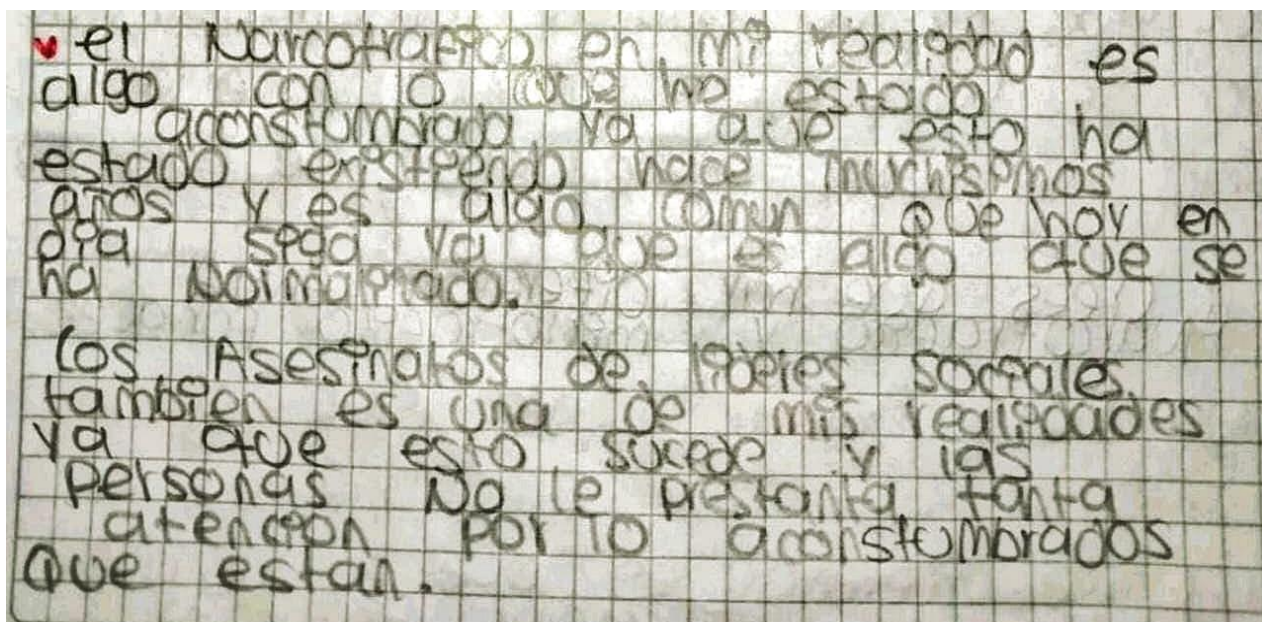 el Narcotrafico en mi realidad es
algo con lo que he estado
aconstumbrada ya que esto ha
estado existiendo hace muchisimos
años y es algo comun que hoy en
dia siga ya que es algo que se
ha Normalizado.
los Asesinatos de lideres sociales
tambien es una de mis realidades
ya que esto sucede y las
personas No le prestanta tanta
atencion por lo aconstumbrados
que estan.